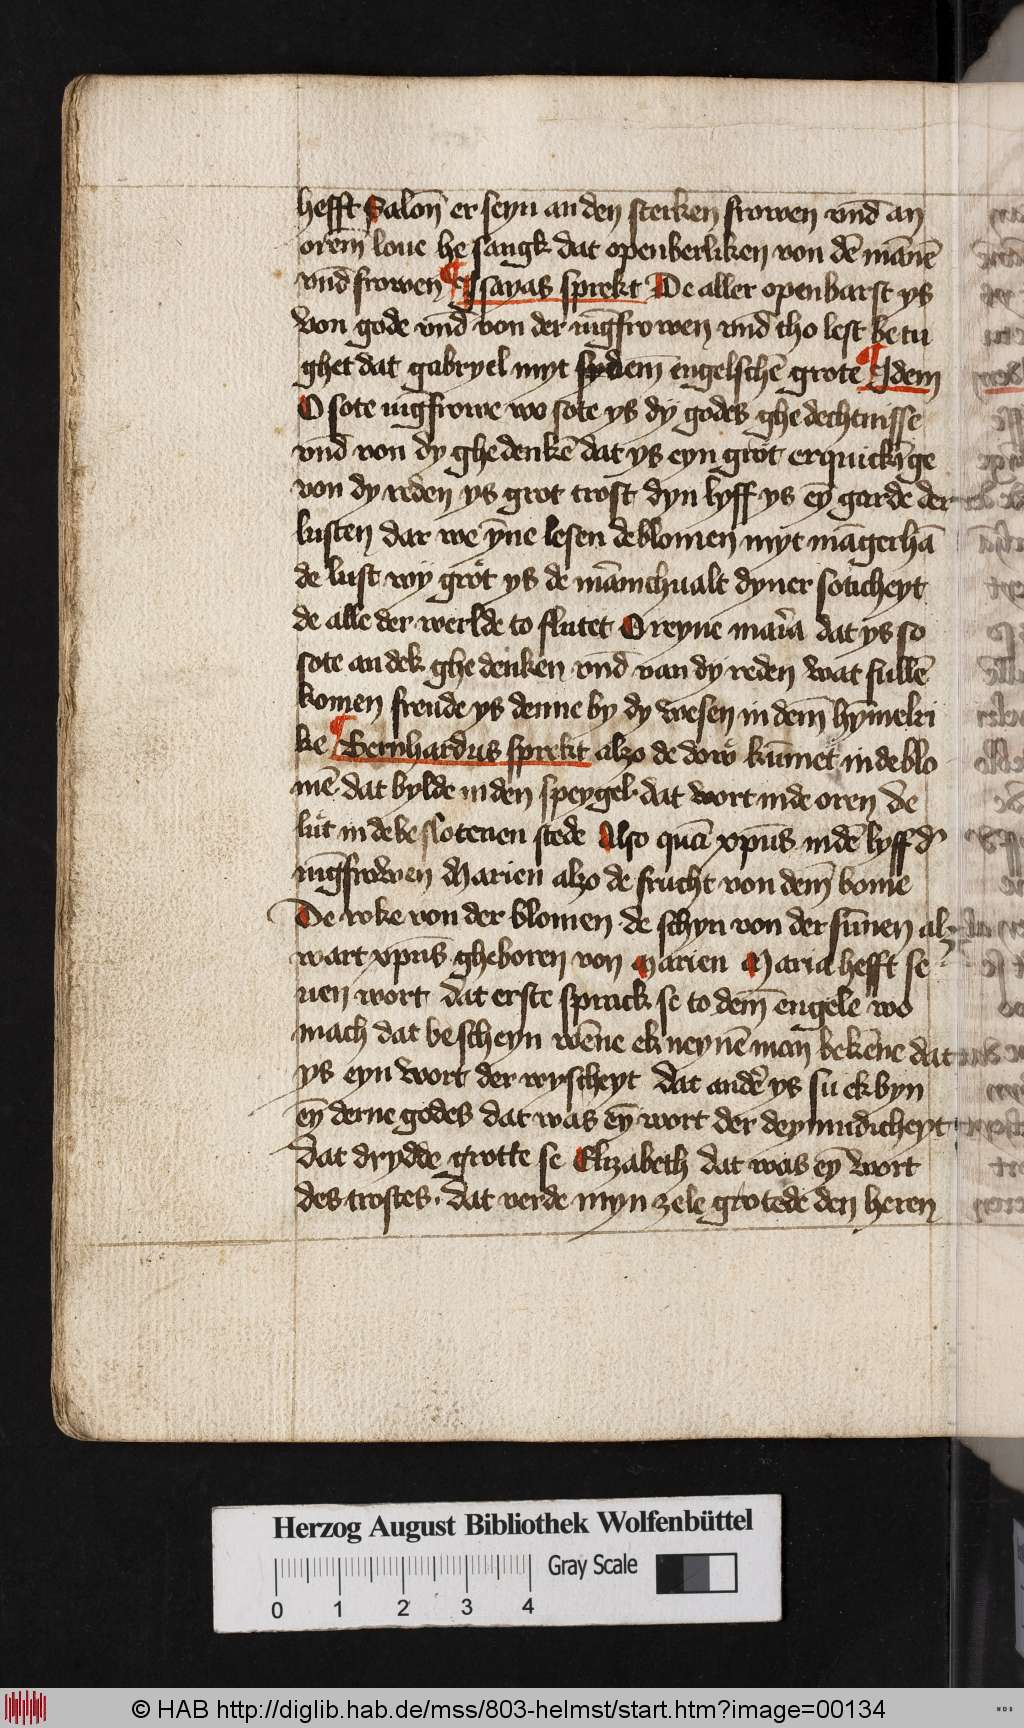 hefft Salon̄ er seyn an den sterken frowen vnd̄ an
orem̄ loue he sangk dat openberliken von dē mānē
vnd̄ frowen ¶ Jsayas sprekt De aller openbarst ys
von gode vnd̄ von der iūgfrowen vnd tho lest be tu
ghet dat gabryel myt sydem̄ engelschē grote ¶ Jdem
O sote iūgfrowe wo sote ys dy godes ghedechtnisse
vnd̄ von dy ghedenkē dat ys eyn grot erquickīge
von dy reden ys grot trost dyn lyff ys eȳ garde der
lusten dar we ȳne lesen de blomen myt māgerhā
de lust wy grot ys de mānichualt dyner soticheyt
de alle der werlde to flutet O reyne maria dat ys so
sote an dek ghedenken vnd̄ van dy reden wat fullē
komen freude ys denne by dy wesen in dem̄ hȳmelri
ke ¶ Bernhardus sprekt alzo de dow kūmet in de blo
mē dat bylde in den speygel dat wort in de oren de
lut in de beslotenen stede Also quā xp̄us in dē lyff d'
iūgfrowen Marien alzo de frucht von dem̄ bome
De roke von der blomen de schyn von der sūnen alz
wart xp̄us gheboren von Marien Maria hefft se
uen wort dat erste sprack se to dem̄ engele wo
mach dat bescheyn wēne ek neynē man bekēne dat
ys eyn wort der wyscheyt dat ander ys su ek byn
eȳ derne godes dat was eȳ wort der deymudicheyt
dat drydde grotte se Elizabeth dat was eȳ wort
des trostes dat verde myn zele grotede den heren
Herzog August Bibliothek Wolfenbüttel
Gray Scale
0 1 2 3 4
© HAB http://diglib.hab.de/mss/803-helmst/start.htm?image=00134